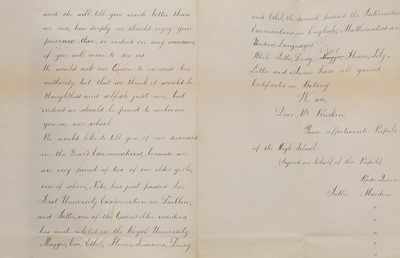 and she will tell you much better than
we can, how deeply we should enjoy your
presence then, or indeed on any occasion,
if you will come to see us
We would ask our Queen to exercise her
authority, but that we think it would be
thoughtless and selfish just now, but
indeed we should be proud to welcome
you in our school.
We would like to tell you of our success
in the Grand Examinations, because we
are very proud of two of our older girls,
one of whom, Nita, has just passed her
First University Examination in Dublin;
and Lettie, one of the Queen's elder maidens
has matriculated in the Royal University
Maggie, Eva, Ethel, Florrie, Susanna, Daisy
and Ethel, the second, passed the Intermediate
Examinations in English, Mathematics and
Modern Languages
Ethel, Lettie, Daisy, Florrie, Lily,
Lettie and Annie have all gained
Certificates in Botany
We are
Dear Mr Ruskin
Your affectionate Pupils
of the High School
(Signed on behalf of the Pupils)
Rose Queen
Lettie Maiden